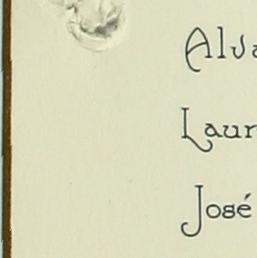 Alva
Laur
José